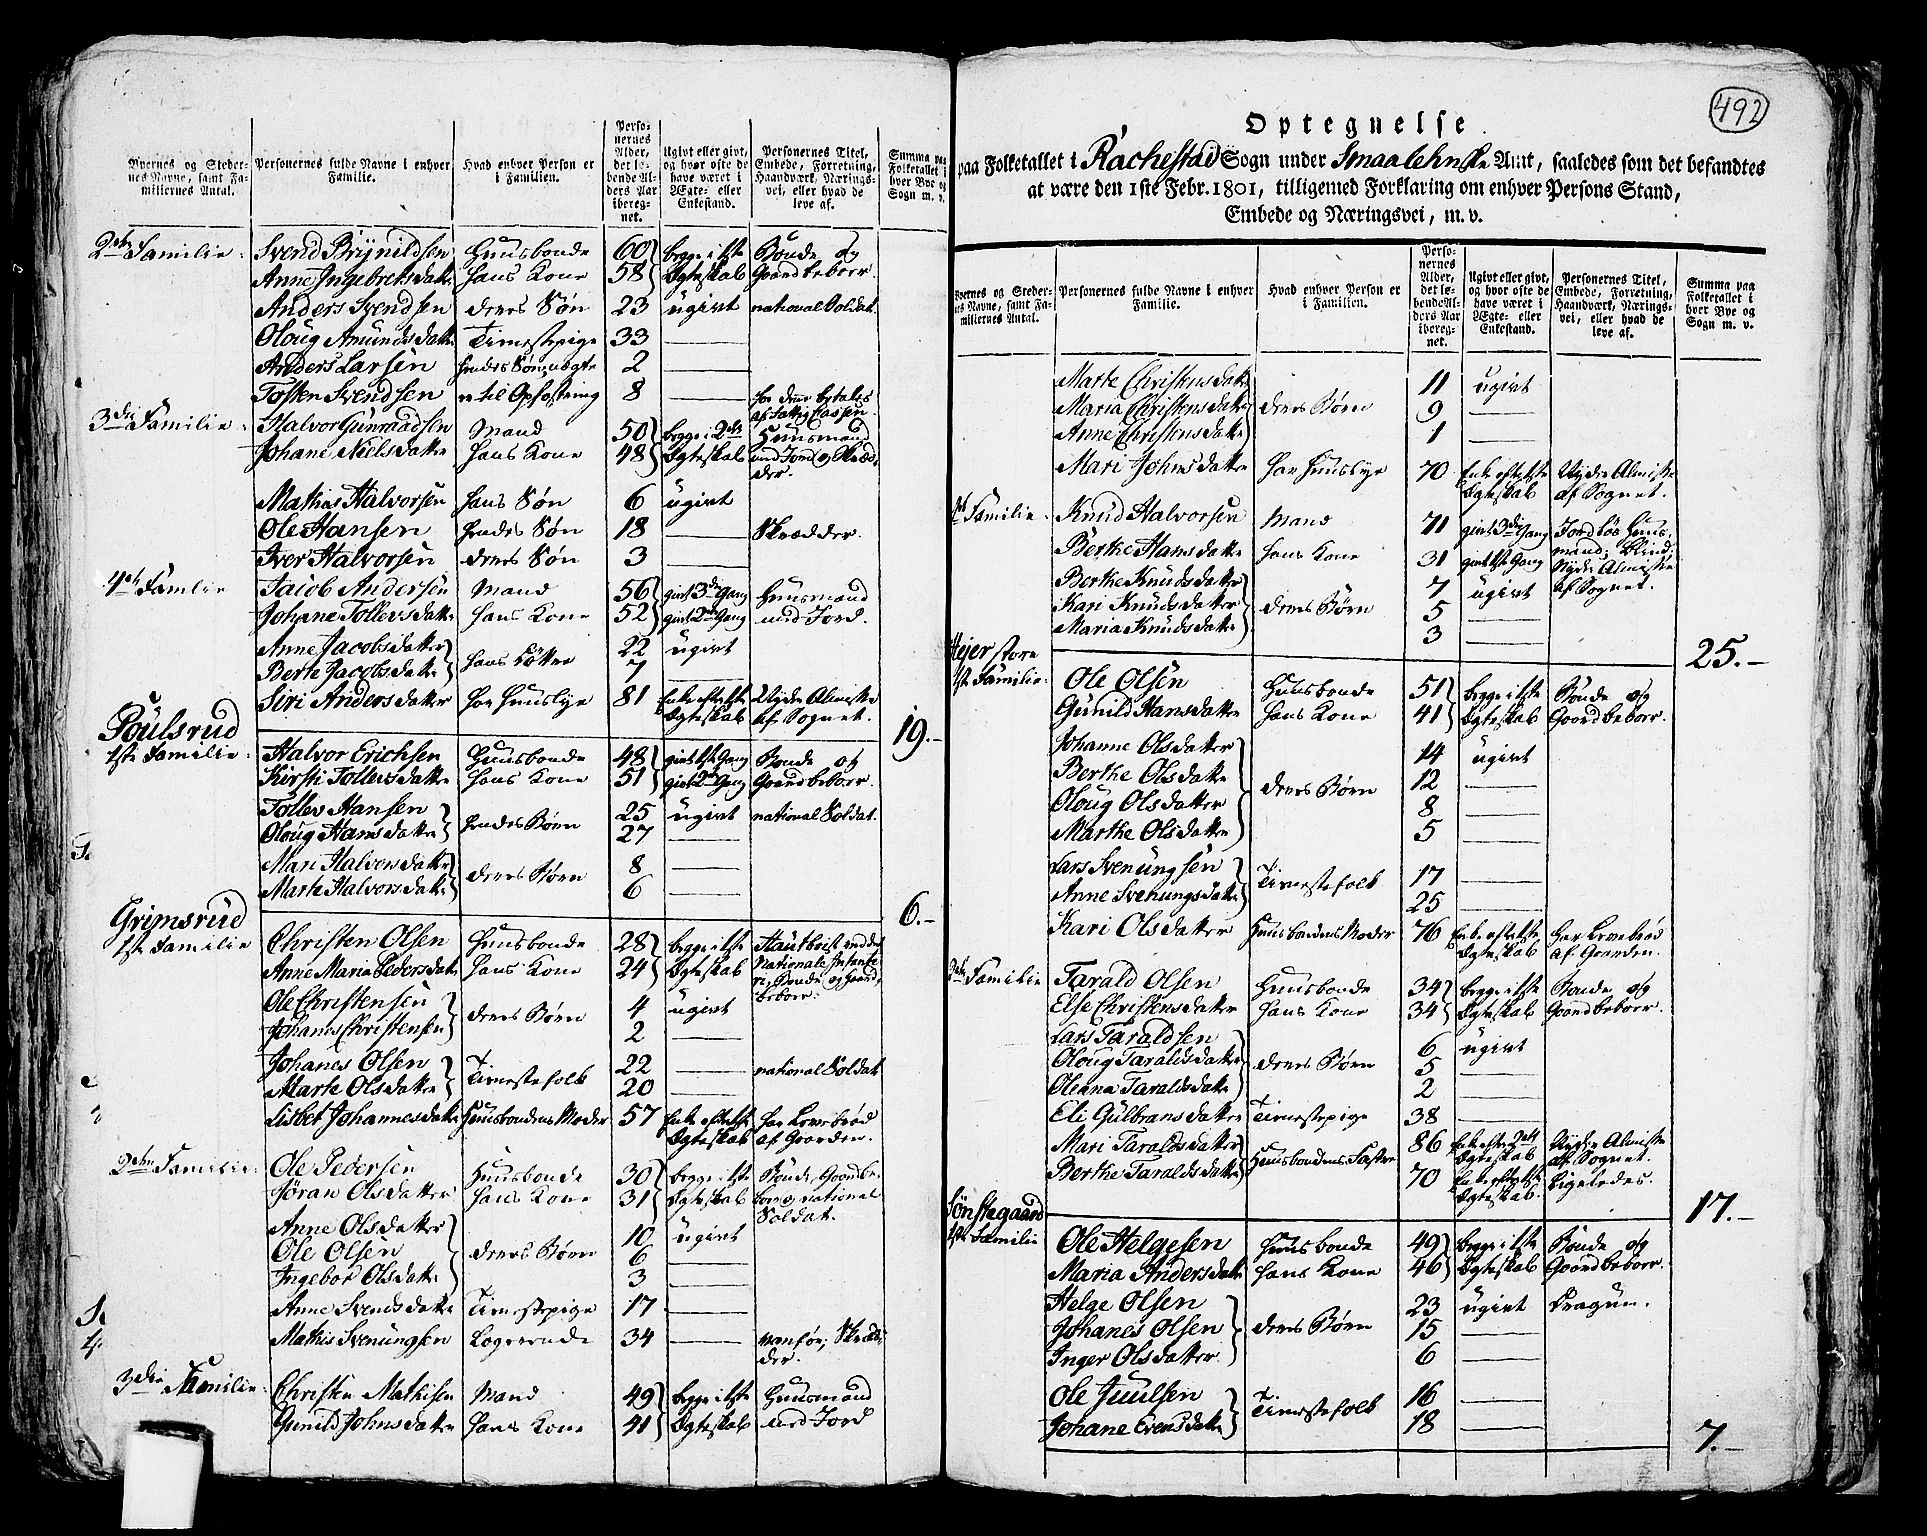 492
Byernes og Steder-
nes Navne, samt Fa-
miliernes Antal.
Personernes fulde Navne i enhver
Familie.
Hvad enhver Person er
i Familien.
Perso-
nernes
Alder,
det le-
bende Al-
ders Aar
ibereg-
net.
Ugivt eller givt,
og hvor ofte de
have været i
Ægte- eller
Enkestand.
Personernes Titel,
Embede, Forretning,
Haandværk, Nærings-
vei, eller hvad de
leve af.
Summa paa
Folketallet i
hver Bye og
Sogn m. v.
2den Familie. Svend Brynildsen Huusbonde 60 begge i 1ste Bonde og
Anne Ingebretsdatter hans Kone 58 Ægteskab Gaardbeboer.
Anders Svendsen deres Søn 23 ugivt national Soldat
Oloug Amundsdatter Tienestepige 33
Anders Larsen hendes Søn, uægte 2
Tosten Svendsen er til Opfostring 8 for dem betales
af Fattig Cassen.
3die Familie. Halvor Gunnradsen Mand 50 begge i 2det Huusmand
Johane Nielsdatter hans Kone 48 Ægteskab med Jord og Skræd-
der.
Mathias Halvorsen hans Søn 6 ugivt
Ole Hansen hendes Søn 18 Skrædder.
Iver Halvorsen deres Søn 3
4de Familie Jacob Andersen Mand 56 givt 3die Gang Huusmand
Johane Tollevsdatter hans Kone 52 givt 2den Gang med Jord.
Anne Jacobsdatter hans Døttre 22 ugivt
Berte Jacobsdatter 7
Siri Andersdatter for Huuslye 81 Enke efter 1ste Nyder Almisse
Ægteskab af Sognet. 19.-
Poulsrud
1ste Familie. Halvor Erichsen Huusbonde 48 givt 1ste Gang Bonde og
Kirsti Tollevsdatter hans Kone 51 givt 2den Gang Gaardbeboer.
Tollev Hansen hendes Børn 25 ugivt national Soldat.
Oloug Hansdatter 27
Mari Halvorsdatter deres Børn 8
Marte Halvorsdatter 6
6.-
Grimsrud
1ste Familie Christen Olsen Huusbonde 28 begge i 1ste Hautboist ved det
Anne Maria Pedersdatter hans Kone 24 Ægteskab Nationale Infante-
ri, Bonde og Gaard-
beboer.
Ole Christensen deres Børn 4 ugivt
Johanes Christensen 2
Johanes Olsen Tienestefolk 22 national Soldat
Marte Olsdatter 20
Lisbet Johannesdatter Huusbondens Moder 57 Enke efter 1ste har Levebrød
Ægteskab af Gaarden.
2den Familie. Ole Pedersen Huusbonde 30 begge i 1ste Bonde, Gaardbe-
Jøran Olsdatter hans Kone 31 Ægteskab boer og national
Soldat.
Anne Olsdatter deres Børn 10 ugivt
Ole Olsen 6
Ingebor Olsdatter 3
Anne Svendsdatter Tienestepige 17
Mathis Svenungsen Logerende 34 vanfør, Skræd-
der.
3die Familie. Christen Mathisen Mand 49 begge i 1ste Huusmand
Gunild Johnsdatter hans Kone 41 Ægteskab med Jord
Optegnelse
paa Folketallet i Rachestad Sogn under Smaalehnske Amt, saaledes som det befandtes
at være den 1ste Febr. 1801, tilligemed Forklaring om enhver Persons Stand,
Embede og Næringsvei, m. v.
Byernes og Steder-
nes Navne, samt Fa-
miliernes Antal.
Personernes fulde Navne i enhver
Familie.
Hvad enhver Person er
i Familien.
Perso-
nernes
Alder,
det le-
bende Al-
ders Aar
ibereg-
net.
Ugivt eller givt,
og hvor ofte de
have været i
Ægte- eller
Enkestand.
Personernes Titel,
Embede, Forretning,
Haandværk, Nærings-
vei, eller hvad de
leve af.
Summa paa
Folketallet i
hver Bye og
Sogn m. v.
Marte Christensdatter 11 ugivt
Maria Christensdatter deres Børn 9
Anne Christensdatter 1
Mari Johnsdatter for Huuslye 70 Enke efter 1ste Nyder Almisse
Ægteskab af Sognet.
Familie. Knud Halvorsen Mand 71 givt 3die Gang Jordløs Huus-
mand; Blind;
Berthe Hansdatter hans Kone 31 givt 1ste Gang Nyder Almisse
af Sognet.
Berthe Knudsdatter 7 ugivt
Kari Knudsdatter deres Børn 5
Maria Knudsdatter 3
25.-
Hejer store
1ste Familie. Ole Olsen Huusbonde 51 begge i 1ste Bonde og
Gunild Hansdatter hans Kone 41 Ægteskab Gaardbeboer.
Johanne Olsdatter 14 ugivt
Berthe Olsdatter deres Børn 12
Oloug Olsdatter 8
Marthe Olsdatter 5
Lars Svenungsen Tienestefolk 17
Anne Svenungsdatter 25
Kari Olsdatter Huusbondens Moder 76 Enke efter 1ste har Levebrød
Ægteskab af Gaarden.
2den Familie Tarald Olsen Huusbonde 34 begge i 1ste Bonde og
Else Christensdatter hans Kone 34 Ægteskab Gaardbeboer.
Lars Taraldsen 6 ugivt
Oloug Taraldsdatter deres Børn 5
Oleana Taraldsdatter 2
Eli Gulbransdatter Tienestepige 38
Mari Taraldsdatter Huusbondens Faster 86 Enke efter 2det Nyder Almisse
Ægteskab af Sognet.
Berthe Taraldsdatter 70 Enke efter 1ste Ligeledes.
Ægteskab.
17.-
Sønstegaard
1ste Familie Ole Helgesen Huusbonde 49 begge i 1ste Bonde og
Maria Andersdatter hans Kone 46 Ægteskab Gaardbeboer.
Helge Olsen 23 ugivt Dragun.
Johanes Olsen deres Børn 15
Inger Olsdatter. 6
Ole Juulsen Tienestefolk 16
Johane Evensdatter 18
7.-